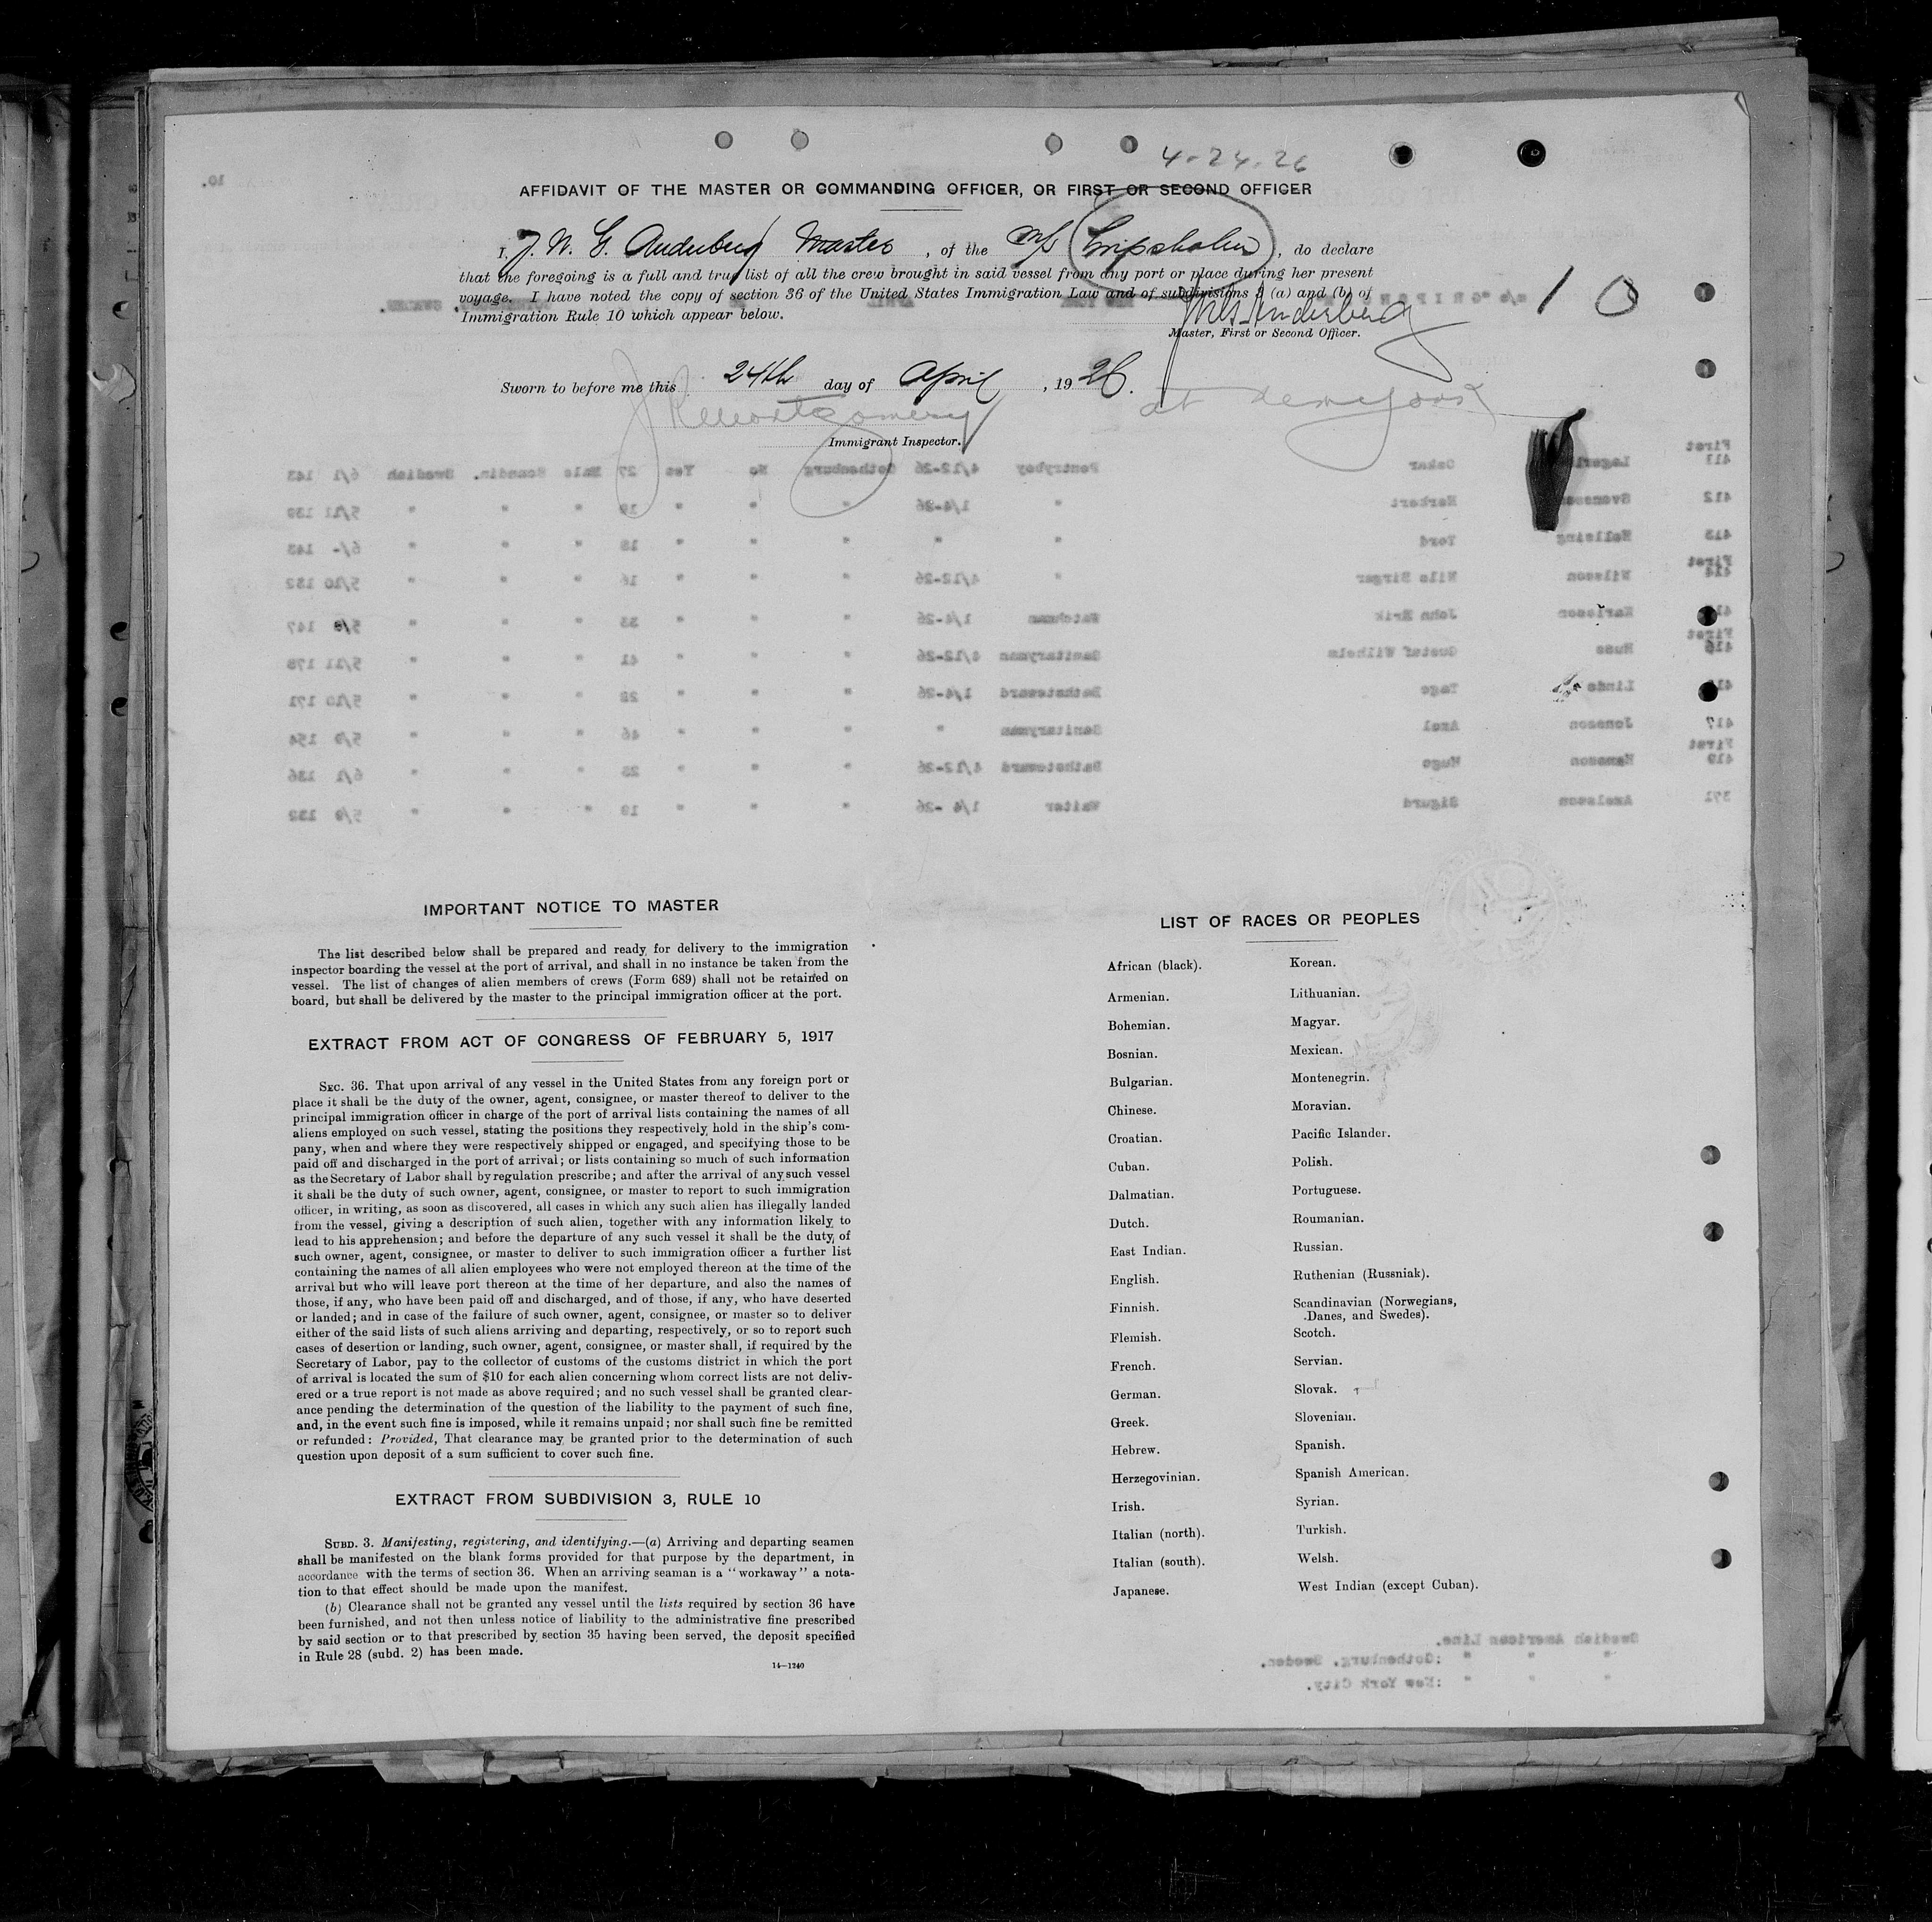 4-24-26
AFFIDAVIT OF THE MASTER OR COMMANDING OFFICER, OR FIRST OR SECOND OFFICER
I, J. W. G. Anderberg Master, of the M/S Gripsholm, do declare
that the foregoing is a full and true list of all the crew brought in said vessel from any port or place during her present
voyage. I have noted the copy of section 36 of the United States Immigration Law and of subdivisions 3 (a) and (b) of
Immigration Rule 10 which appear below.
10
Anderberg
Master, First or Second Officer.
Sworn to before me this 24th day of April, 1926.
at New York
Montgomery
Immigrant Inspector.
IMPORTANT NOTICE TO MASTER
The list described below shall be prepared and ready for delivery to the immigration
inspector boarding the vessel at the port of arrival, and shall in no instance be taken from the
vessel. The list of changes of alien members of crews (Form 689) shall not be retained on
board, but shall be delivered by the master to the principal immigration officer at the port.
EXTRACT FROM ACT OF CONGRESS OF FEBRUARY 5, 1917
SEC. 36. That upon arrival of any vessel in the United States from any foreign port or
place it shall be the duty of the owner, agent, consignee, or master thereof to deliver to the
principal immigration officer in charge of the port of arrival lists containing the names of all
aliens employed on such vessel, stating the positions they respectively hold in the ship's com-
pany, when and where they were respectively shipped or engaged, and specifying those to be
paid off and discharged in the port of arrival; or lists containing so much of such information
as the Secretary of Labor shall by regulation prescribe; and after the arrival of any such vessel
it shall be the duty of such owner, agent, consignee, or master to report to such immigration
officer, in writing, as soon as discovered, all cases in which any such alien has illegally landed
from the vessel, giving a description of such alien, together with any information likely to
lead to his apprehension; and before the departure of any such vessel it shall be the duty of
such owner, agent, consignee, or master to deliver to such immigration officer a further list
containing the names of all alien employees who were not employed thereon at the time of the
arrival but who will leave port thereon at the time of her departure, and also the names of
those, if any, who have been paid off and discharged, and of those, if any, who have deserted
or landed; and in case of the failure of such owner, agent, consignee, or master so to deliver
either of the said lists of such aliens arriving and departing, respectively, or so to report such
cases of desertion or landing, such owner, agent, consignee, or master shall, if required by the
Secretary of Labor, pay to the collector of customs of the customs district in which the port
of arrival is located the sum of $10 for each alien concerning whom correct lists are not deliv-
ered or a true report is not made as above required; and no such vessel shall be granted clear-
ance pending the determination of the question of the liability to the payment of such fine,
and, in the event such fine is imposed, while it remains unpaid; nor shall such fine be remitted
or refunded: Provided, That clearance may be granted prior to the determination of such
question upon deposit of a sum sufficient to cover such fine.
EXTRACT FROM SUBDIVISION 3, RULE 10
SUBD. 3. Manifesting, registering, and identifying.—(a) Arriving and departing seamen
shall be manifested on the blank forms provided for that purpose by the department, in
accordance with the terms of section 36. When an arriving seaman is a "workaway" a nota-
tion to that effect should be made upon the manifest.
(b) Clearance shall not be granted any vessel until the lists required by section 36 have
been furnished, and not then unless notice of liability to the administrative fine prescribed
by said section or to that prescribed by section 35 having been served, the deposit specified
in Rule 28 (subd. 2) has been made.
14—1240
LIST OF RACES OR PEOPLES
African (black).
Armenian.
Bohemian.
Bosnian.
Bulgarian.
Chinese.
Croatian.
Cuban.
Dalmatian.
Dutch.
East Indian.
English.
Finnish.
Flemish.
French.
German.
Greek.
Hebrew.
Herzegovinian.
Irish.
Italian (north).
Italian (south).
Japanese.
Korean.
Lithuanian.
Magyar.
Mexican.
Montenegrin.
Moravian.
Pacific Islander.
Polish.
Portuguese.
Roumanian.
Russian.
Ruthenian (Russniak).
Scandinavian (Norwegians,
Danes, and Swedes).
Scotch.
Servian.
Slovak.
Slovenian.
Spanish.
Spanish American.
Syrian.
Turkish.
Welsh.
West Indian (except Cuban).